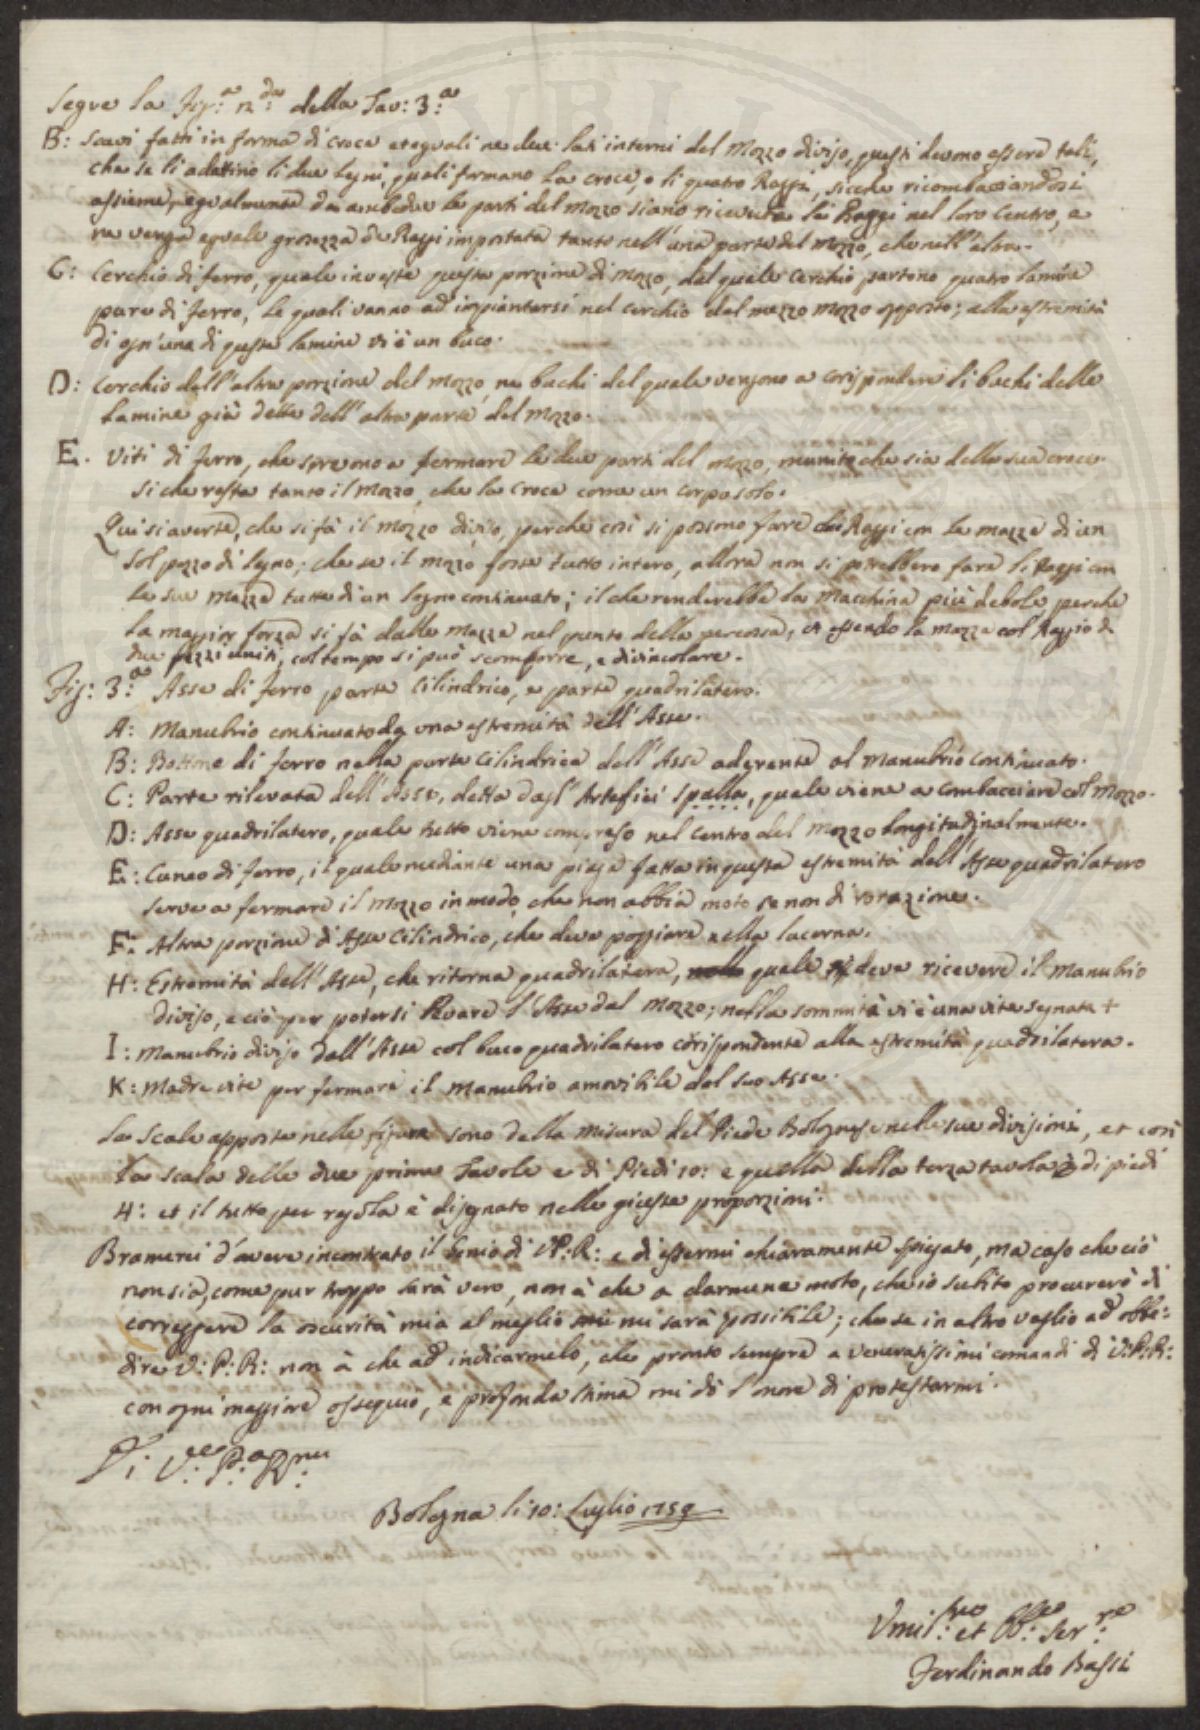 Segue la Fig:ª 2:da della Tav: 3:ª
B: Scavi fatti in forma di croce et eguali ne due lati interni del Mozzo diviso, questi devono essere tali,
che se li adattino li due legni, quali formano la croce, o li quatro Raggi, sicche ricombacciandosi
assieme, egualmente da ambedue le parti del mozzo siano ricevuti li Raggi nel loro Centro, e
ne venga eguale grossezza de Raggi impostata tanto nell'una parte del mozzo, che nell'altra.
C: Cerchio di ferro, quale investe questa porzione di mozzo, dal quale Cerchio partono quatro lamine
pure di ferro, le quali vanno ad impiantarsi nel cerchio del mezzo mozzo opposto; alla estremità
di ogn'una di queste lamine vi è un buco.
D: Cerchio dell'altra porzione del mozzo, ne buchi del quale vengono a corispondere li buchi delle
lamine già dette dell'altra parte del mozzo.
E. Viti di ferro, che servono a fermare le due parti del mozzo, munito che sia della sua croce
si che resta tanto il mozzo, che la croce come un corpo solo.
Qui si averte, che si fà il mozzo diviso, perche così si possono fare li Raggi con le mazze di un
sol pezzo di legno; che se il mozzo fosse tutto intero, allora non si potrebbero fare li Raggi con
le sue mazze tutte di un legno continuato; il che renderebbe la macchina più debole perche
la maggior forza si fà dalle mazze nel punto della percossa, et essendo la mozza col Raggio di
due pezzi uniti, col tempo si può scomporre, e divincolare.
Fig: 3:ª Asse di ferro parte Cilindrico, e parte quadrilatero.
A: Manubrio continuato da una estremità dell'Asse.
B: Bottone di ferro nella parte Cilindrica dell'Asse aderente al manubrio continuato.
C: Parte rilevata dell'Asse, detta dagl'Artefici spalla, quale viene a combacciare col Mozzo.
D: Asse quadrilatero, quale tutto viene compreso nel centro del mozzo longitudinalmente.
E: Cuneo di ferro, il quale mediante una piega fatta in questa estremità dell'Asse quadrilatero
serve a fermare il mozzo in modo, che non abbia moto se non di rotazione.
F: Altra porzione di Asse Cilindrico, che deve poggiare nella lucerna.
H: Estremità dell'Asse, che ritorna quadrilatera, quale deve ricevere il manubrio
diviso, e ciò per potersi levare l'Asse dal mozzo; nella sommità vi è una vite segnata +
I: Manubrio diviso dall'Asse col buco quadrilatero corispondente alla estremità quadrilatera.
K: Madre vite per fermare il manubrio amovibile dal suo Asse.
Le Scale apposte nelle figure sono della misura del Piede Bolognese nelle sue divisioni, et così
la scala delle due prime Tavole e di Piedi 10: e quella della terza tavola è di piedi
4: et il tutto per regola è disegnato nelle giuste proporzioni.
Bramerei d'avere incontrato il Genio di V:P:R: e di essermi chiaramente spiegato, ma caso che ciò
non sia, come pur troppo sarà vero, non à che a darmene moto, che io subito procurerò di
correggere la oscurità mia al meglio mi sarà possibile; che se in altro vaglio ad obbe:
dire V:P:R: non à che ad indicarmelo, che pronto sempre a veneratissimi comandi di V:P:R:
con ogni maggiore ossequio, e profonda stima mi dò l'onore di protestarmi.
Di V:
Bologna li 10: Luglio 1759
Vmil:mo et Obb:mo Ser:re
Ferdinando Bassi